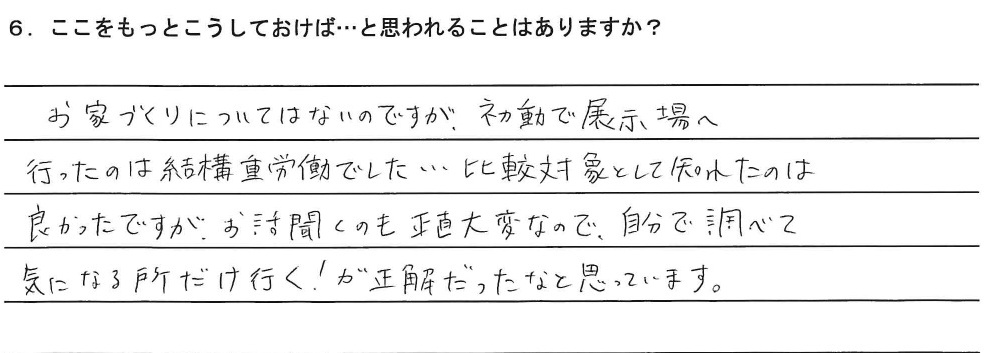 6．ここをもっとこうしておけば…と思われることはありますか？
お家づくりについてはないのですが、初動で展示場へ
行ったのは結構重労働でした… 比較対象として知れたのは
良かったですが、お話聞くのも正直大変なので、自分で調べて
気になる所だけ行く！が正解だったなと思っています。